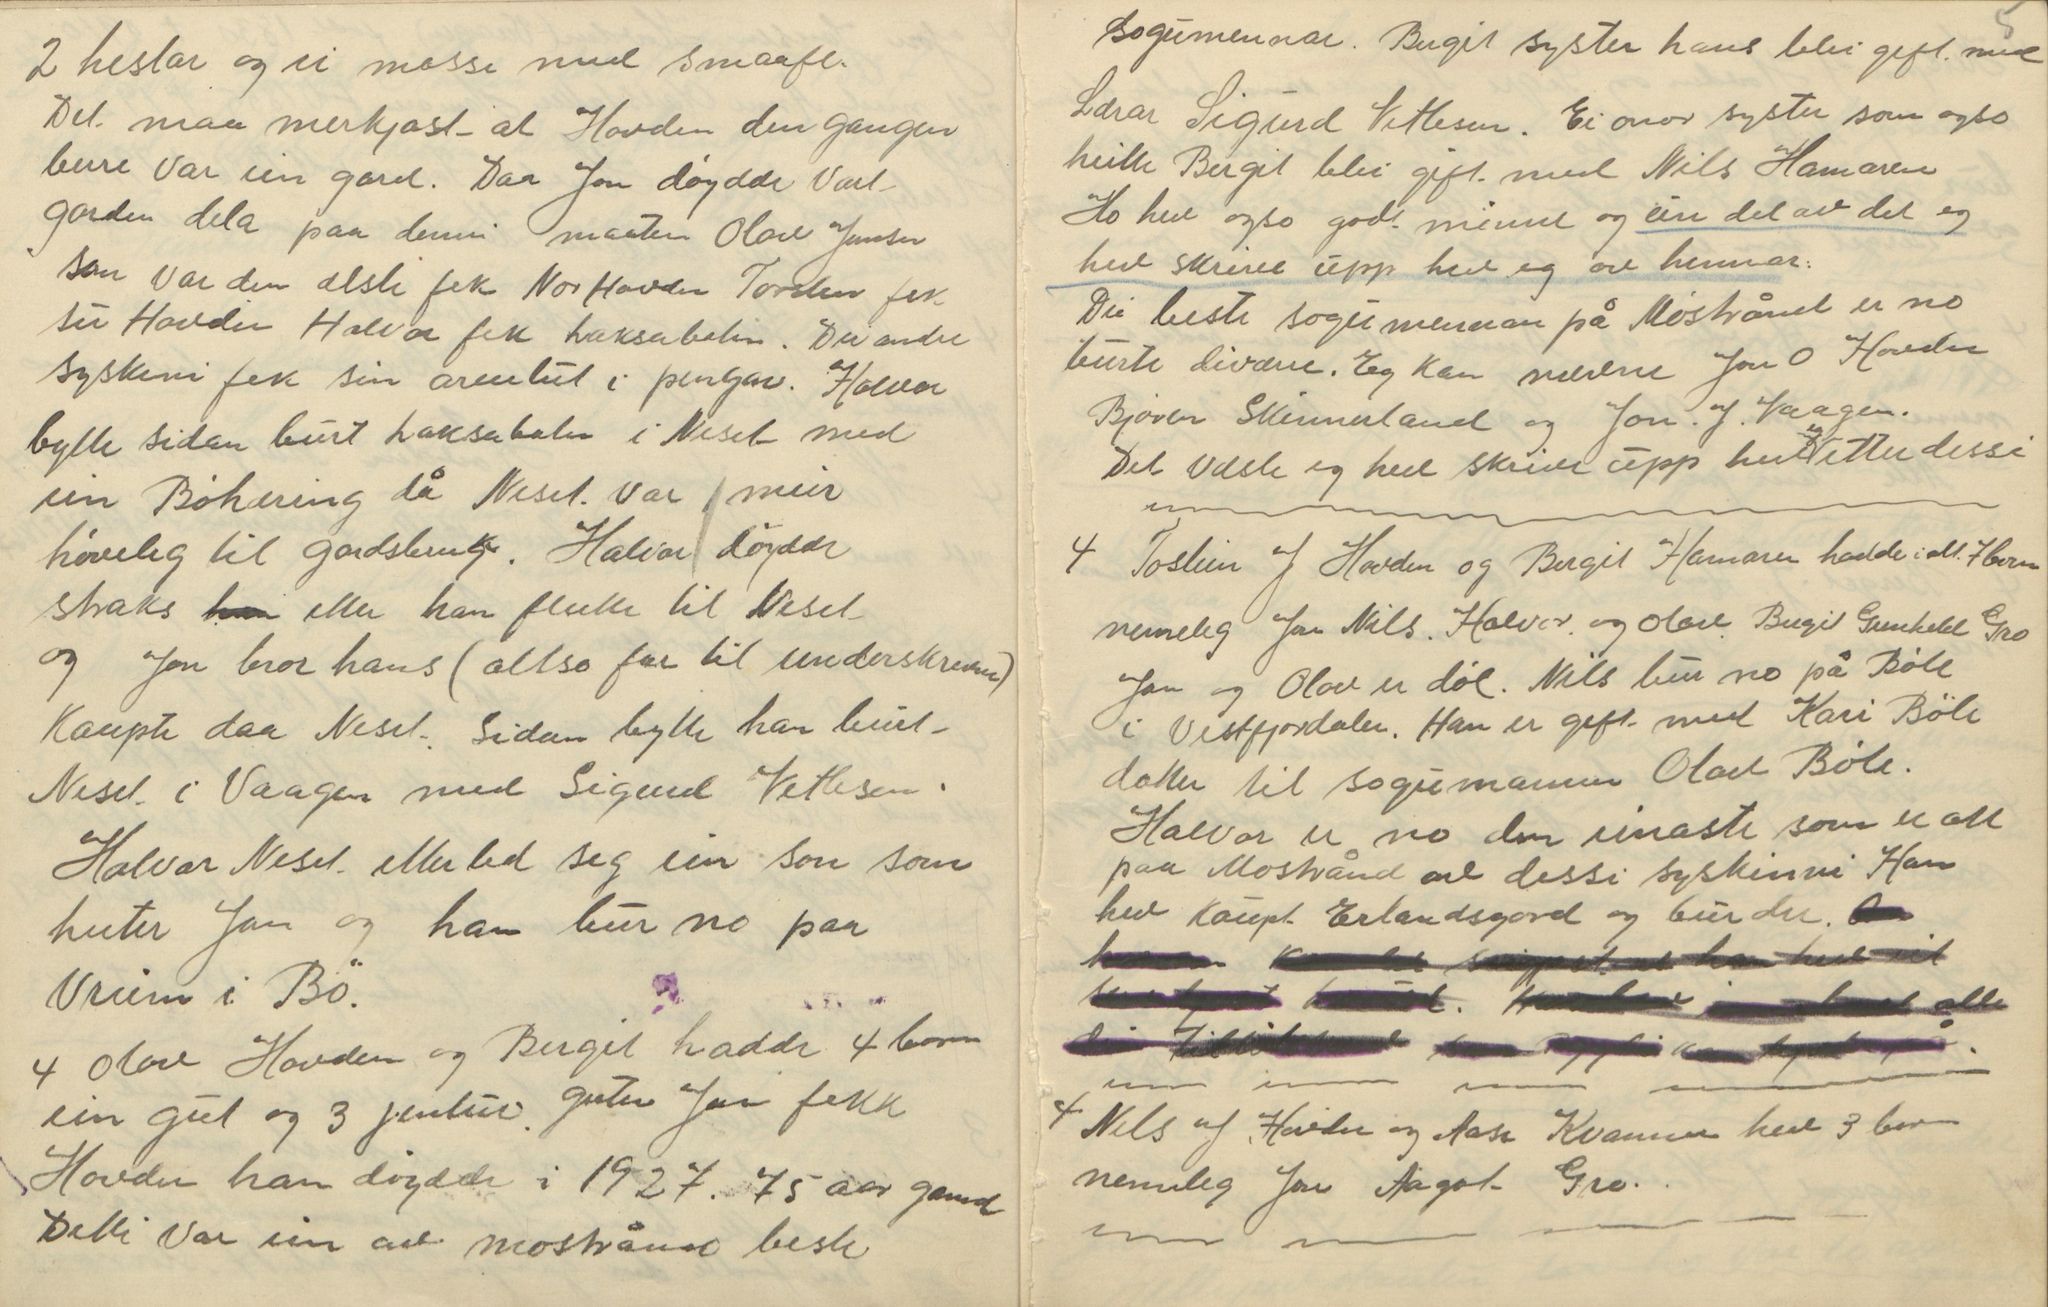 2 hestar og ei masse med smaafe.
Det maa merkjast at Hovden den gangen
bere var ein gard. Daa Jon döydde vart
garden dela paa denni maaten Olav Jonsen
som var den elste fek Nor Hovden Torstein fek
su Hovden Halvor fek haksabolen. Dei andre
syskeni fek sin arvelut i pengar. Halvor
bytte sidan burt haksabolen i Neset med
ein Böhæring då Neset var meir
höveleg til gardsbruk. Halvor döydde
straks etter han flutte til Neset
og Jon bror hans (altso far til underskrevne)
kaupte daa Neset. Sidan bytte han burt
Neset i Vaagen med Sigurd Vetlesen.
Halvor Neset etterled seg ein son som
heiter Jon og han bur no paa
Vreim i Bö.
4 Olav Hovden og Bergit hadde 4 born
ein gut og 3 jentur. guten Jon fekk
Hovden han döydde i 1927. 75 aar gamal
Detti var ein av mostrånd beste
5
sogumennar. Bergit syster hans blei gift med
Lærar Sigurd Vetlesen. Ei onor syster som ogso
heitte Bergit blei gift med Nils Hamaren
Ho hev ogso godt minne og ein del av det eg
hev skrive upp hev eg av hennar.
Dei beste sogumennan på Möstrånd er no
burte diverre. Eg kan nevne Jon O Hovden
Björn Skinnerland og Jon. J. Vaagen.
Det meste eg hev skrive upp hev eg etter dessi
4 Tostein J Hovden og Bergit Hamaren hadde i alt 7 born
nemeleg Jon Nils. Halvor. og Olav. Bergit Gunhild Gro
Jon og Olav er död. Nils bur no på Böle
i Vestfjordalen. Han er gift med Kari Böle
dotter til sogumannen Olav Böle.
Halvor er no den einaste som er att
paa Mostrånd av dessi syskinni Han
hev kaupt Erlandsgard og bur der.
alle
4 Nils J. Hovden og Aase Kvamen hev 3 born
nemeleg Jon Aagot Gro.